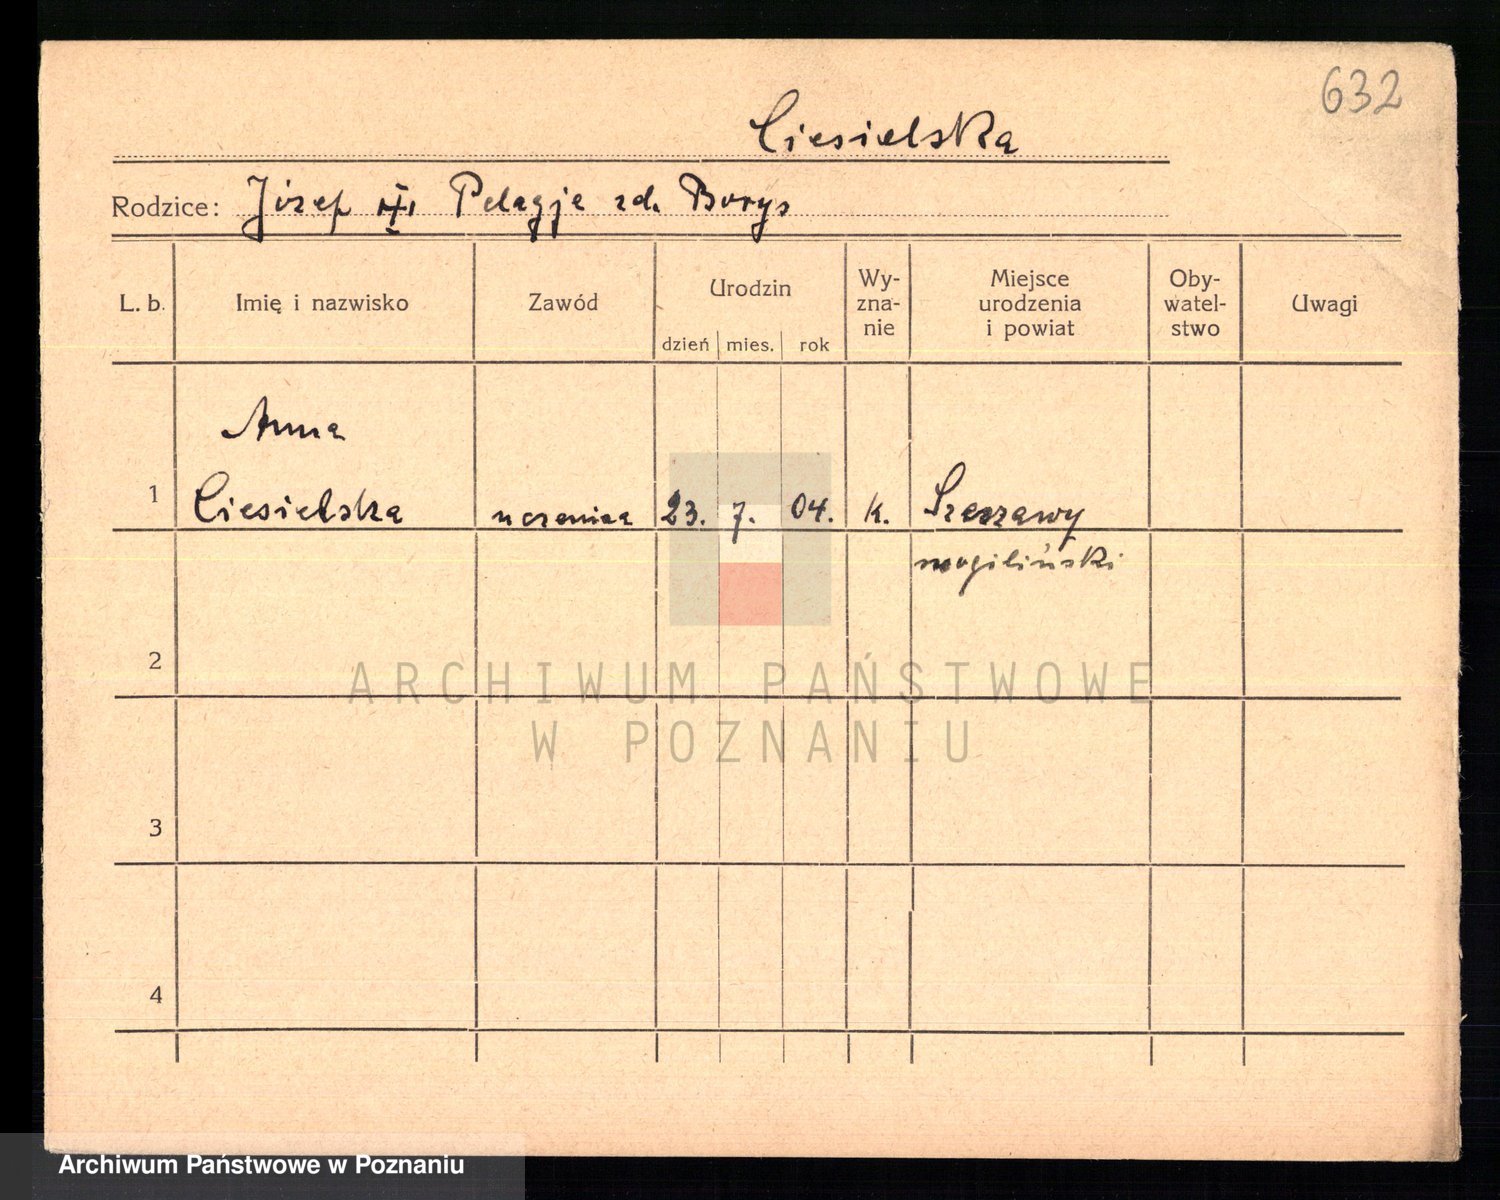 632
Ciesielska
Rodzice: Józef III Pelagje zd. Borys
L. b. Imię i nazwisko Zawód Urodzin dzień mies. rok Wy-zna-nie Miejsce urodzenia i powiat Oby-watel-stwo Uwagi
Anna
1 Ciesielska uczenica 23. 7. 04. k. Szczawy
mogiliński
2
ARCHIWUM PAŃSTWOWE
W POZNANIU
3
4
Archiwum Państwowe w Poznaniu